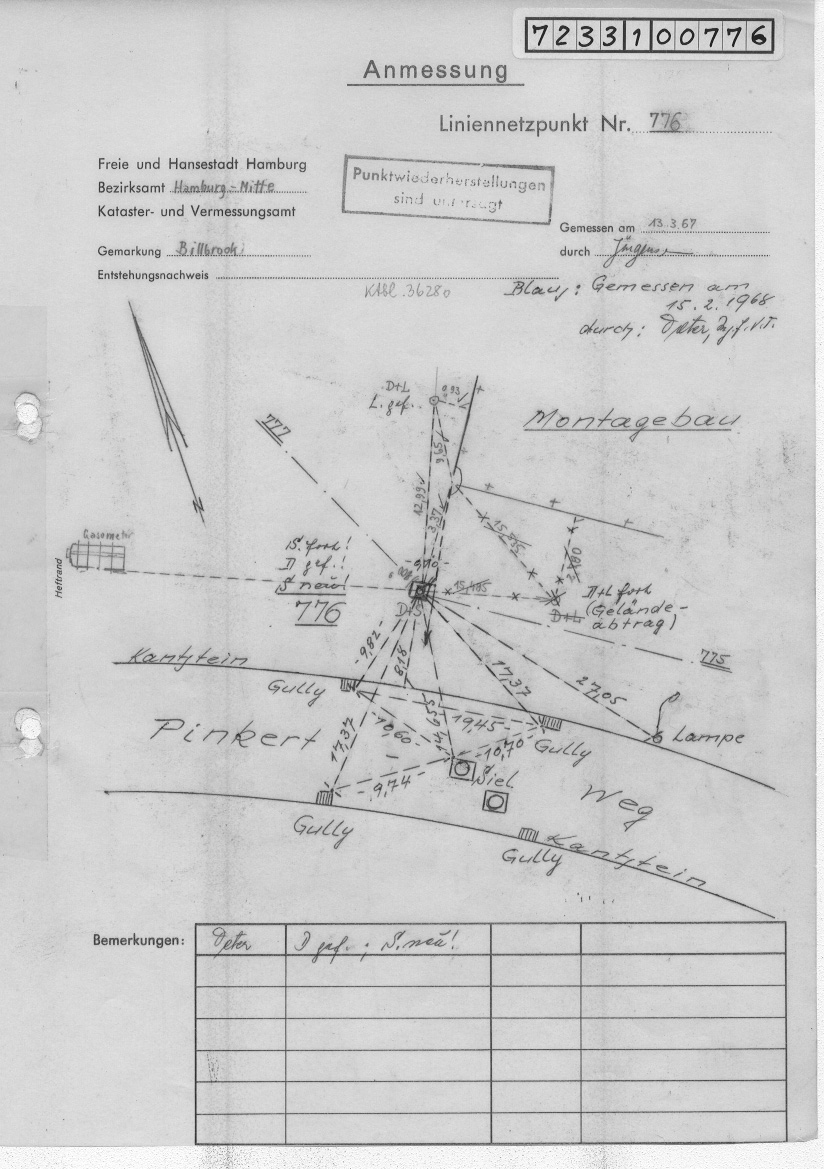 7233100776
Anmessung
Liniennetzpunkt Nr. 776
Freie und Hansestadt Hamburg
Bezirksamt Hamburg-Mitte
Kataster- und Vermessungsamt
Punktwiederherstellungen
sind untersagt
Gemessen am 13.3.67
durch
Gemarkung Billbrook
Entstehungsnachweis
KABl. 36280
Blau: Gemessen am
15.2.1968
durch: Peter,
D+L
L. gef.
0,93
777
Montagebau
9,65
12,99
3,37
15,835
3,780
Gasometer
Heftrand
S. fort!
D gef.!
S neu!
776
9,10
15,485
D+S
D+L fort
D+L
(Gelände-
abtrag)
775
Kantstein
9,82
8,18
17,37
27,05
Gully
Lampe
Pinkert
17,37
10,60
14,655
19,45
10,70
Gully
9,74
Siel
Weg
Gully
Gully
Kantstein
Bemerkungen:
Peter
D gef.; S. neu!